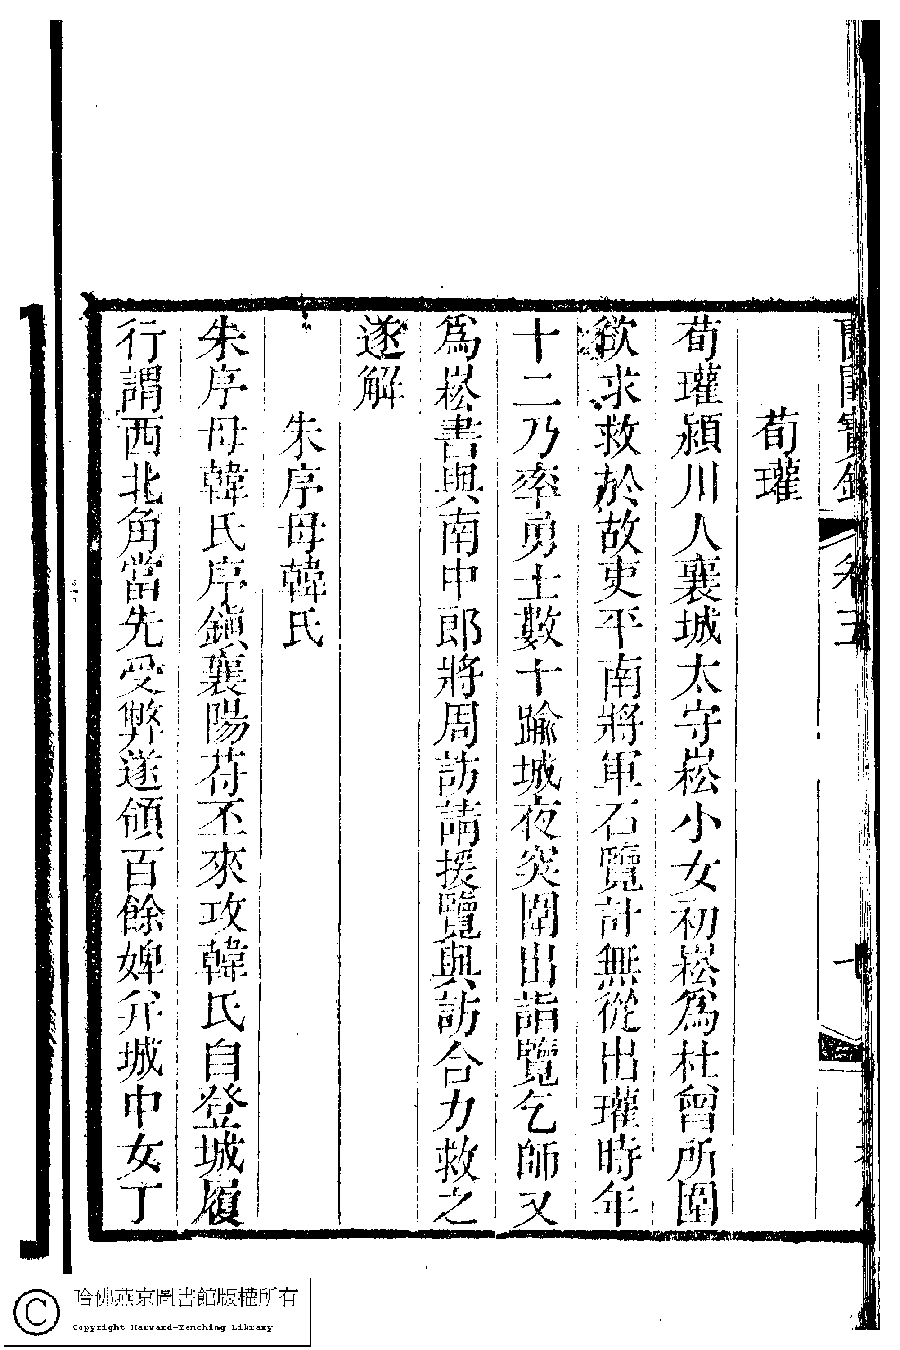 寶
卷五
荀瓘
荀瓘潁川人襄城太守崧小女初崧爲杜曾所圍
欲求救於故吏平南將軍石覽計無從出瓘時年
十二乃率勇士數十踰城夜突圍出詣覽乞師又
爲崧書與南中郎將周訪請援覽與訪合力救之
遂解
朱序母韓氏
朱序母韓氏序鎭襄陽苻丕來攻韓氏自登城履
行謂西北角當先受弊遂領百餘婢幷城中女丁
哈佛燕京圖書館版權所有
Copyright Harvard-Yenching Library